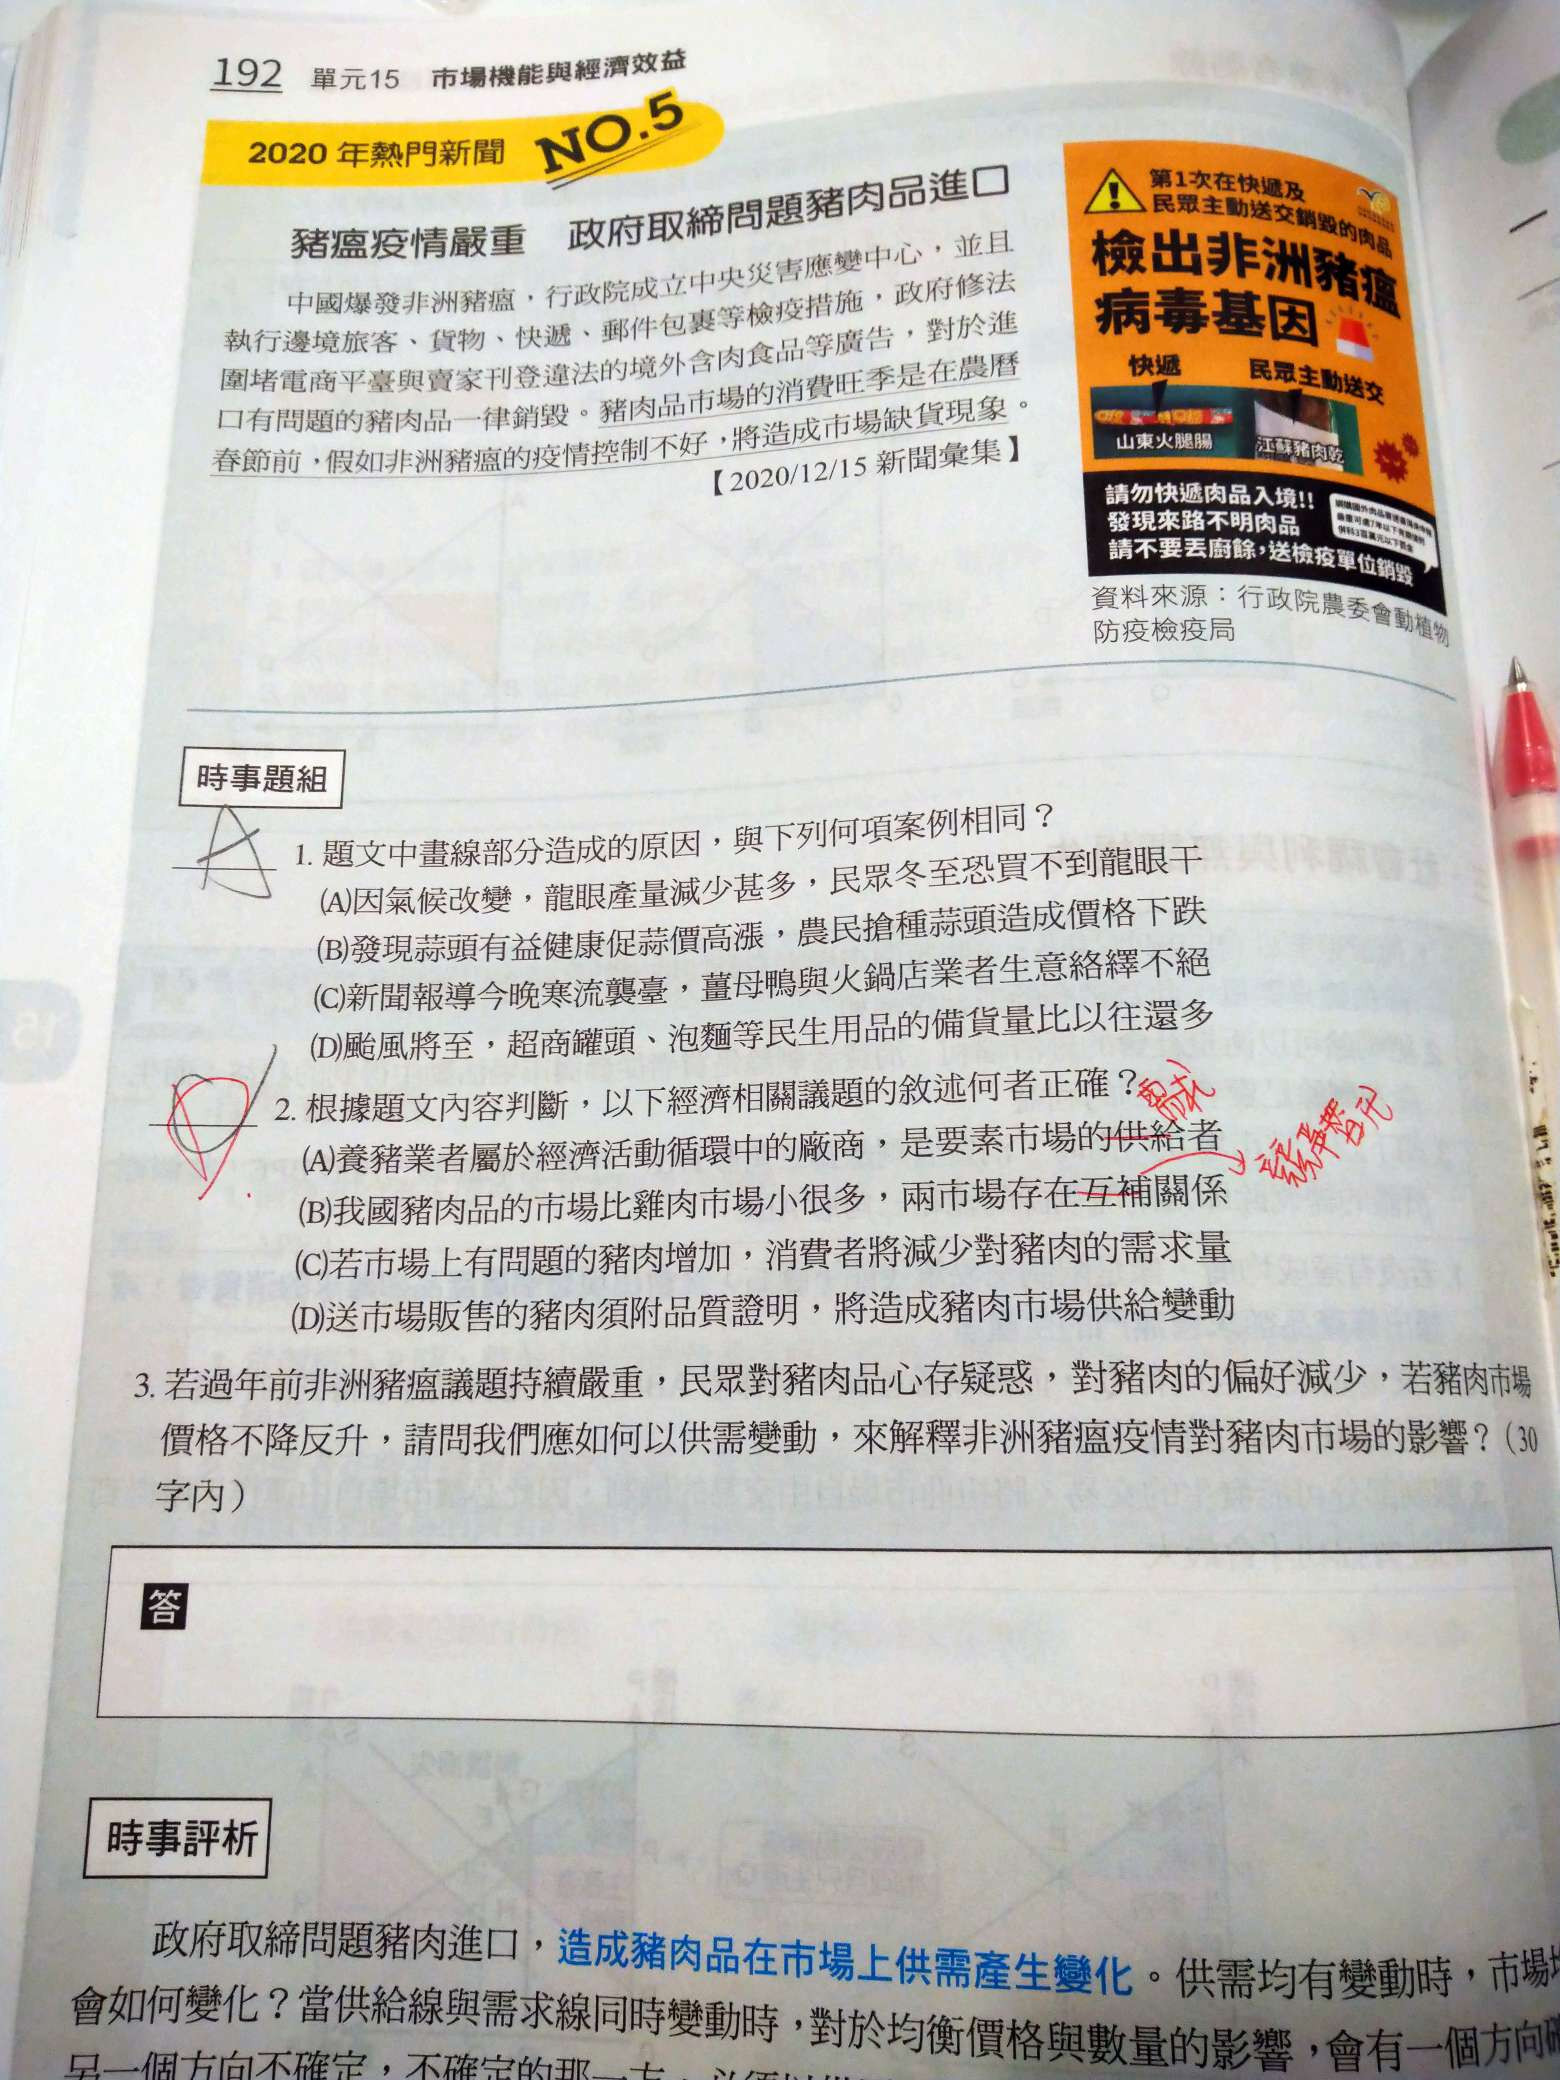 192 單元15 市場機能與經濟效益
2020 年熱門新聞 NO.5
豬瘟疫情嚴重 政府取締問題豬肉品進口
中國爆發非洲豬瘟，行政院成立中央災害應變中心，並且
執行邊境旅客、貨物、快遞、郵件包裹等檢疫措施，政府修法
圍堵電商平臺與賣家刊登違法的境外含肉食品等廣告，對於進
口有問題的豬肉品一律銷毀。豬肉品市場的消費旺季是在農曆
春節前，假如非洲豬瘟的疫情控制不好，將造成市場缺貨現象。
【2020/12/15 新聞彙集】
第1次在快遞及
民眾主動送交銷毀的肉品
檢出非洲豬瘟
病毒基因
快遞 民眾主動送交
山東火腿腸 江蘇豬肉乾
請勿快遞肉品入境!!
發現來路不明肉品
請不要丟廚餘，送檢疫單位銷毀
資料來源：行政院農委會動植物
防疫檢疫局
時事題組
A
1. 題文中畫線部分造成的原因，與下列何項案例相同？
(A)因氣候改變，龍眼產量減少甚多，民眾冬至恐買不到龍眼干
(B)發現蒜頭有益健康促蒜價高漲，農民搶種蒜頭造成價格下跌
(C)新聞報導今晚寒流襲臺，薑母鴨與火鍋店業者生意絡繹不絕
(D)颱風將至，超商罐頭、泡麵等民生用品的備貨量比以往還多
D
2. 根據題文內容判斷，以下經濟相關議題的敘述何者正確？
需求
(A)養豬業者屬於經濟活動循環中的廠商，是要素市場的供給者
(B)我國豬肉品的市場比雞肉市場小很多，兩市場存在互補關係
(C)若市場上有問題的豬肉增加，消費者將減少對豬肉的需求量
(D)送市場販售的豬肉須附品質證明，將造成豬肉市場供給變動
3. 若過年前非洲豬瘟議題持續嚴重，民眾對豬肉品心存疑惑，對豬肉的偏好減少，若豬肉市場
價格不降反升，請問我們應如何以供需變動，來解釋非洲豬瘟疫情對豬肉市場的影響？（30
字內）
答
時事評析
政府取締問題豬肉進口，造成豬肉品在市場上供需產生變化。供需均有變動時，市場
會如何變化？當供給線與需求線同時變動時，對於均衡價格與數量的影響，會有一個方向
另一個方向不確定，不確定的那一方，必須以供
15